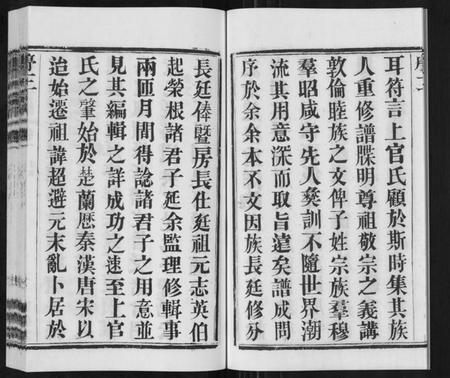 耳符言上官氏顧於斯時集其族
人重修譜牒明尊祖敬宗之義講
敦倫睦族之文俾子姓宗族羣穆
羣昭咸守先人彜訓不隨世界潮
流其用意深而取旨遠矣譜成問
序於余余本不文因族長廷修分
長廷俸暨房長仕莛祖元志英伯
起榮根諸君子延余監理修輯事
兩匝月間得諗諸君子之用意並
見其編輯之詳成功之速至上官
氏之肇始於楚蘭歷秦漢唐宋以
迨始遷祖諱超避元末亂卜居於